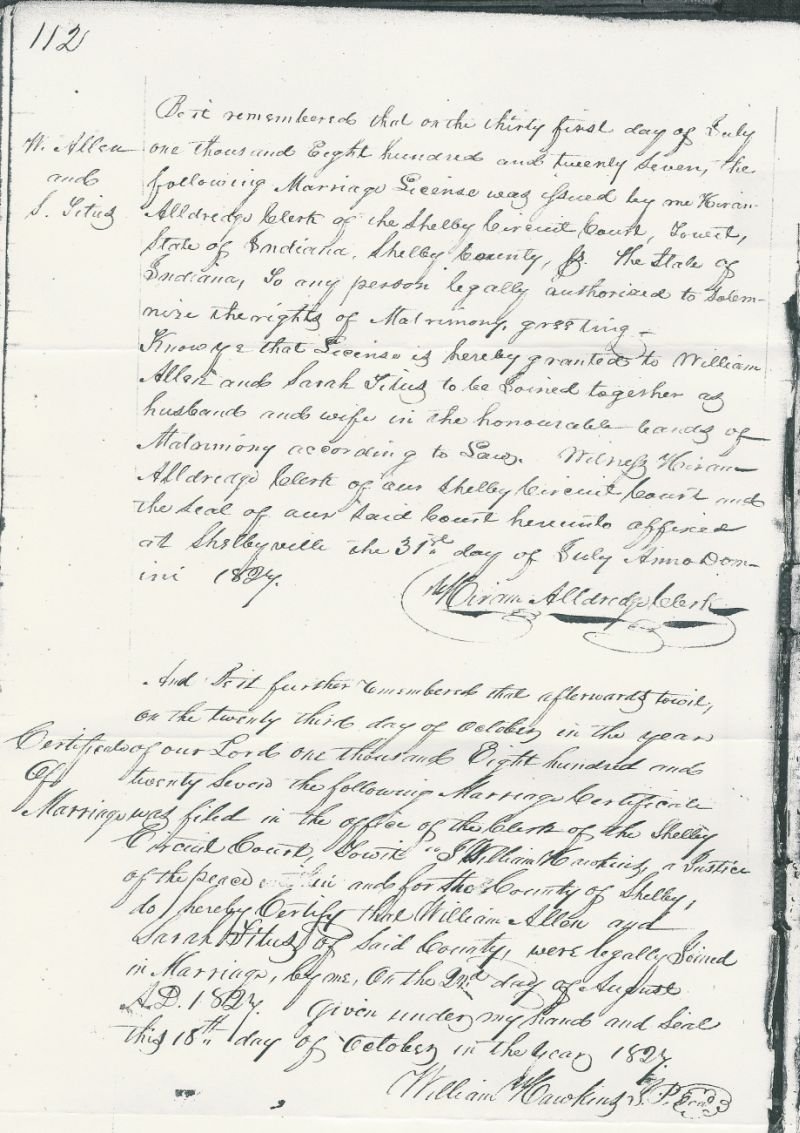 112
W. Allen
and
S. Titus
Be it remembered that on the thirty first day of July
one thousand Eight hundred and twenty seven, the
following Marriage License was issued by me Hiram
Alldredge Clerk of the Shelby Circuit Court, Towit,
State of Indiana, Shelby County, ss. The State of
Indiana, To any person legally authorized to Solem-
nize the rights of Matrimony, greeting -
Know ye that License is hereby granted to William
Allen and Sarah Titus to be Joined together as
husband and wife in the honourable bands of
Matrimony according to Law. Witness Hiram
Alldredge Clerk of our Shelby Circuit Court and
the seal of our said Court hereunto affixed
at Shelbyville the 31st day of July Anno Dom-
ini 1827.
Hiram Alldredge Clerk
And Be it further remembered that afterwards towit,
on the twenty third day of October in the year
of our Lord one thousand Eight hundred and
twenty seven the following Marriage Certificate
was filed in the office of the Clerk of the Shelby
Circuit Court, Towit "I William Hawkins, a Justice
of the peace in and for the County of Shelby,
do hereby Certify that William Allen and
Sarah Titus of said County, were legally Joined
in Marriage, by me, On the 2nd day of August
A.D. 1827. Given under my hand and seal
this 18th day of October in the year 1827.
William Hawkins J.P. Seal
Certificate
Of
Marriage